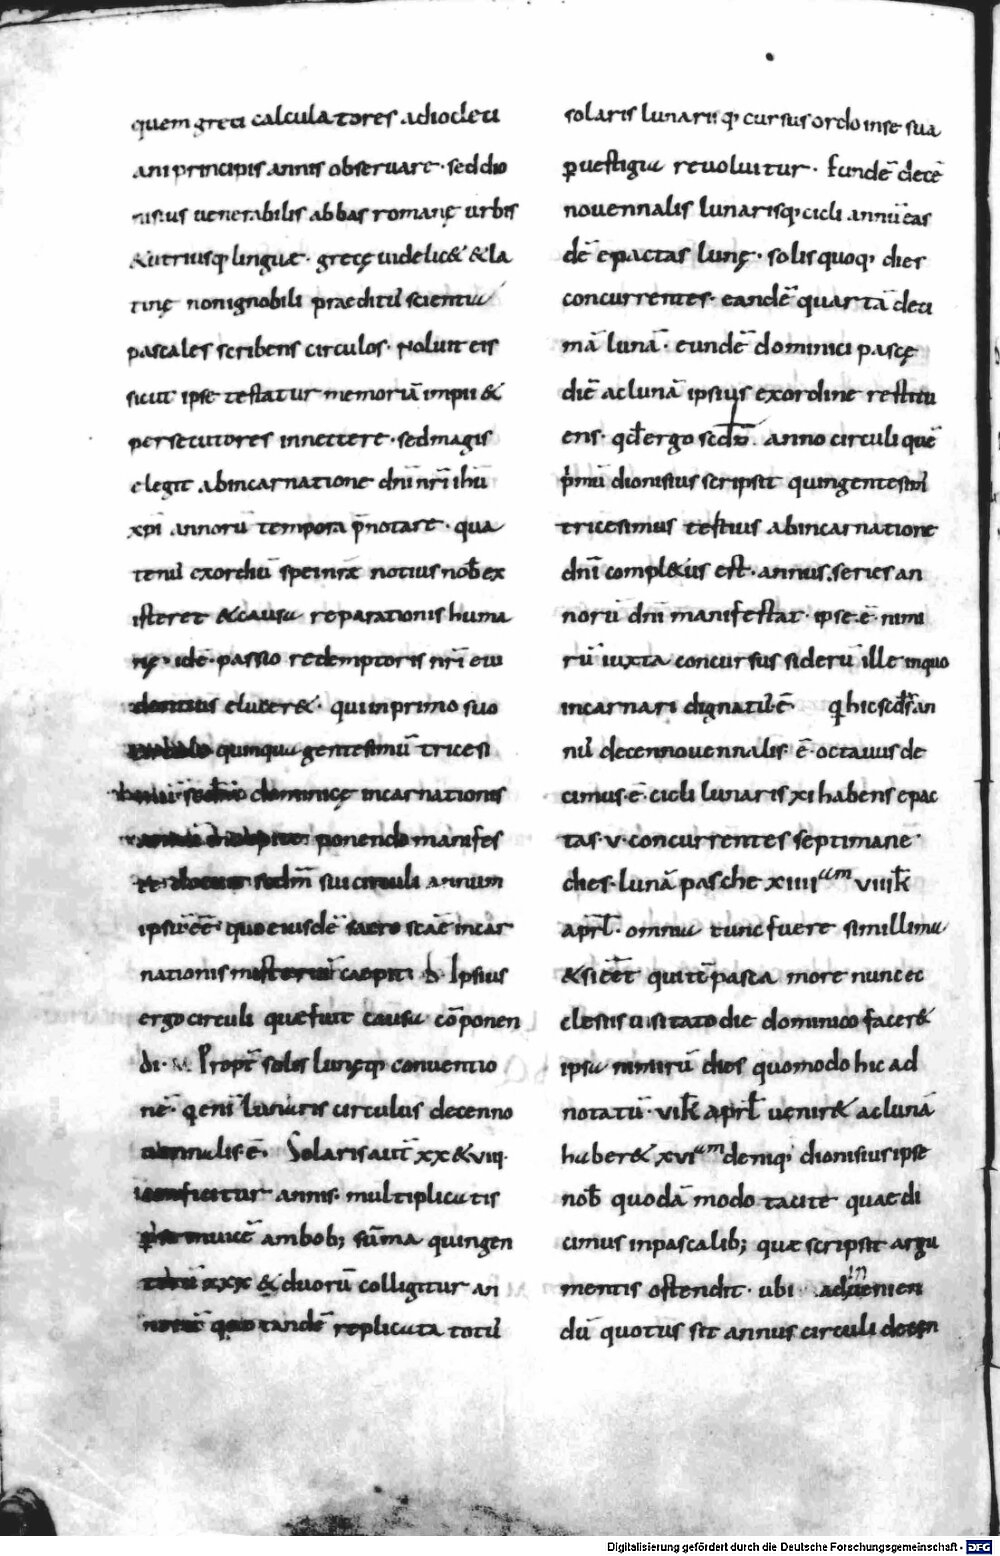 quem greci calculatores adiocleti
ani principis annis obseruare · sed dio
nisius uenerabilis abbas romanę urbis
& utriusq; linguæ · grecę uidelic& & la
tinę non ignobili praeditū scientia
pascales scribens circulos · Noluit eis
sicut ipse testatur memoriā impii &
persecutores innectere · sed magis
elegit ab incarnatione dn̄i nr̄i ih̄u
xp̄i annorū tempora p̄notare · qua
tenus exordiū spei nr̄æ notius nob̄ ex
isteret & causa reparationis huma
nę · idē · passio redemptoris nr̄i eui
dentius eluter& · qui in primo suo
quinqua gentesimū tricesi
dominicę incarnationis
ponendo manifes
te sedm̄ sui circuli annum
ipsū eē · quo eiusdē sacro scāe incar
nationis misteriū caepit · Ipsius
ergo circuli quæ fuit causa cōponen
di · M Propt̄ solis lunęq; conuentio
nē · q eni lunaris circulus decenno
uennalis · ē · Solaris aut̄ xx & viii ·
conficitur annis · multiplicatis
p̄ se inuicē ambob; sūma quingen
torū xxx & duorū colligitur an
norū quo tandē replicata totū
solaris lunarisq; cursus ordo in se sua
ꝑ uestigia reuoluitur · & undē decē
nouennalis lunarisq; cicli annū eas
dē epactas lunę · solis quoq; dies
concurrentes · eandē quartā deci
mā lunā · eundē dominici pascę
diē ac lunā ipsius ex ordine restitu
ens · qd̄ ergo scdō · anno circuli quē
p̄mū dionisius scripsit quingentesim̄
tricesimus testius ab incarnatione
dn̄i compl&us est · annus · series an
norū dn̄i manifestat · ipse · ē · nimi
rū iuxta concursus siderū ille in quo
incarnari dignatus · ē q hic scds̄ an
nus decennouennalis · ē · octauus de
cimus · ē · cicli lunaris xi habens epac
tas · v · concurrentes septimanę
dies · lunā pasche xiiii am viiik̄
apr̄l · omnia tunc fuere simillima
& si cēt qui tc̄ pasca more nunc ec
clesię usitato die dominico facer&
ipsa nimirū dies quomodo hic ad
notatū · vik̄ apr̄l uenir& ac lunā
haber& xvi am deniq; dionisius ipse
nob̄ quodā modo tacite quae di
cimus in pascalib; quæ scripsit argu
mentis ostendit · ubi ad inuenien
dū quotus sit annus circuli decen